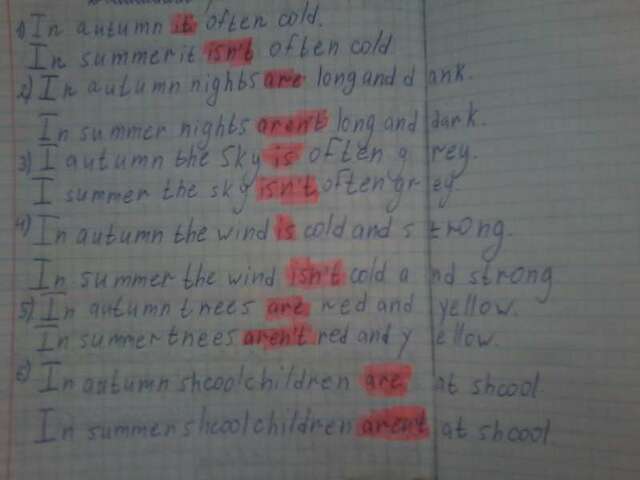 1) In autumn it often cold.
In summer it isn't often cold
2) In autumn nights are long and d ank.
In summer nights aren't long and dark.
3) I autumn the sky is often g rey.
I summer the sky isn't often gr ey
4) In autumn the wind is cold and s trong.
In summer the wind isn't cold a nd strong
5) In autumn tnees are red and yellow.
In summer tnees aren't red and y ellow.
6) In autumn shcoolchildren are at shcool
In summer shcoolchildren aren't at shcool